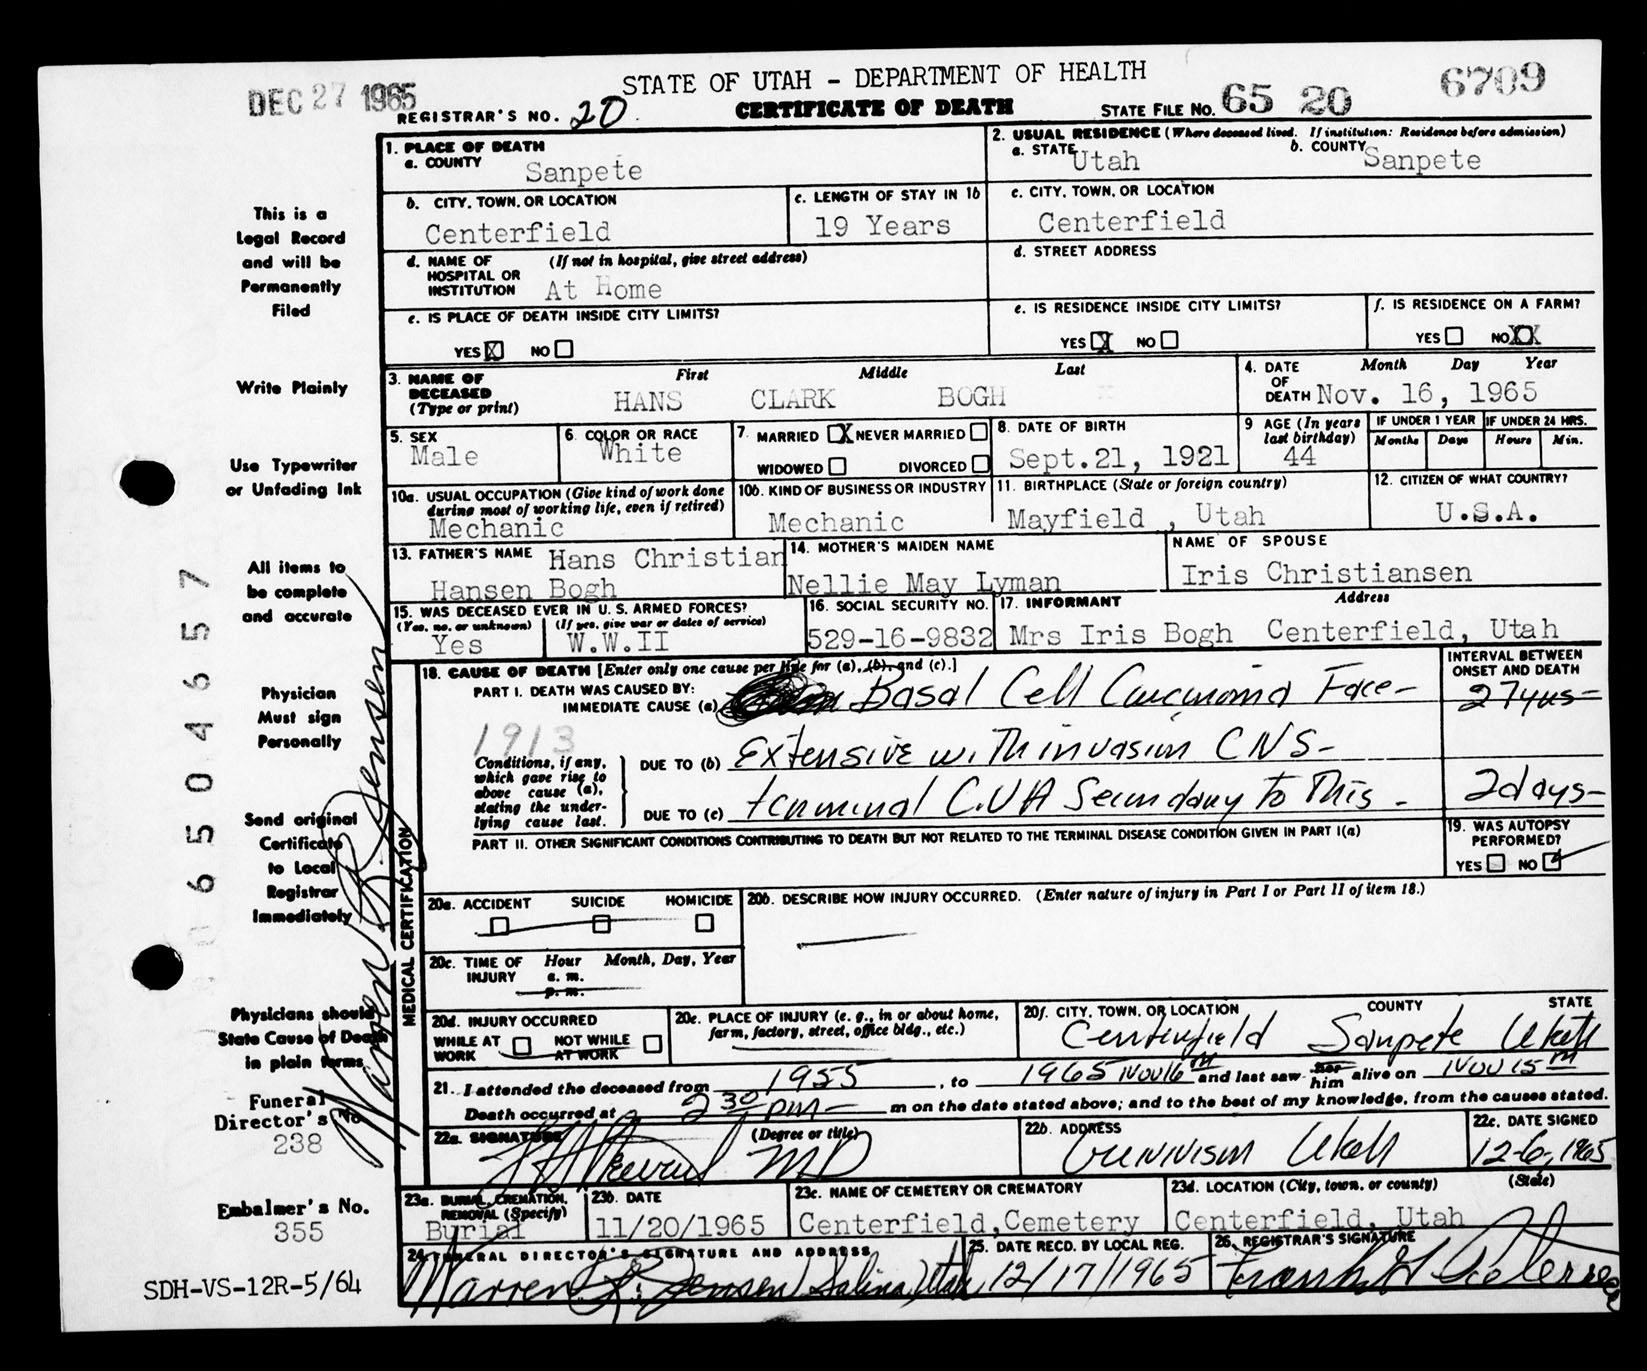 DEC 27 1965
STATE OF UTAH - DEPARTMENT OF HEALTH
6709
REGISTRAR'S NO. 20
CERTIFICATE OF DEATH
STATE FILE NO. 65 20
1. PLACE OF DEATH
a. COUNTY
Sanpete
2. USUAL RESIDENCE (Where deceased lived. If institution: Residence before admission)
a. STATE Utah b. COUNTY Sanpete
b. CITY, TOWN, OR LOCATION
Centerfield
c. LENGTH OF STAY IN 1b
19 Years
c. CITY, TOWN, OR LOCATION
Centerfield
d. NAME OF HOSPITAL OR INSTITUTION (If not in hospital, give street address)
At Home
d. STREET ADDRESS
e. IS PLACE OF DEATH INSIDE CITY LIMITS?
YES X NO
e. IS RESIDENCE INSIDE CITY LIMITS?
YES X NO
f. IS RESIDENCE ON A FARM?
YES NO XX
3. NAME OF DECEASED (Type or print)
First Middle Last
HANS CLARK BOGH
4. DATE OF DEATH Month Day Year
Nov. 16, 1965
5. SEX
Male
6. COLOR OR RACE
White
7. MARRIED X NEVER MARRIED
WIDOWED DIVORCED
8. DATE OF BIRTH
Sept.21, 1921
9 AGE (In years last birthday)
44
IF UNDER 1 YEAR
Months Days
IF UNDER 24 HRS.
Hours Min.
10a. USUAL OCCUPATION (Give kind of work done during most of working life, even if retired)
Mechanic
10b. KIND OF BUSINESS OR INDUSTRY
Mechanic
11. BIRTHPLACE (State or foreign country)
Mayfield , Utah
12. CITIZEN OF WHAT COUNTRY?
U.S.A.
13. FATHER'S NAME Hans Christian
Hansen Bogh
14. MOTHER'S MAIDEN NAME
Nellie May Lyman
NAME OF SPOUSE
Iris Christiansen
15. WAS DECEASED EVER IN U. S. ARMED FORCES?
(Yes, no, or unknown) (If yes, give war or dates of service)
Yes W.W.II
16. SOCIAL SECURITY NO.
529-16-9832
17. INFORMANT Address
Mrs Iris Bogh Centerfield, Utah
MEDICAL CERTIFICATION
18. CAUSE OF DEATH [Enter only one cause per line for (a), (b), and (c).]
INTERVAL BETWEEN ONSET AND DEATH
PART I. DEATH WAS CAUSED BY:
IMMEDIATE CAUSE (a) Basal Cell Carcinoma Face-
27 yrs-
1913
Conditions, if any, which gave rise to above cause (a), stating the underlying cause last.
DUE TO (b) Extensive with invasion CNS-
DUE TO (c) terminal C.V.A Secondary to This -
2 days-
PART II. OTHER SIGNIFICANT CONDITIONS CONTRIBUTING TO DEATH BUT NOT RELATED TO THE TERMINAL DISEASE CONDITION GIVEN IN PART I(a)
19. WAS AUTOPSY PERFORMED?
YES NO ✓
20a. ACCIDENT SUICIDE HOMICIDE
20b. DESCRIBE HOW INJURY OCCURRED. (Enter nature of injury in Part I or Part II of item 18.)
20c. TIME OF INJURY Hour Month, Day, Year
a. m.
p. m.
20d. INJURY OCCURRED
WHILE AT WORK NOT WHILE AT WORK
20e. PLACE OF INJURY (e. g., in or about home, farm, factory, street, office bldg., etc.)
20f. CITY, TOWN, OR LOCATION COUNTY STATE
Centerfield Sanpete Utah
21. I attended the deceased from 1955, to 1965 Nov 16th and last saw her him alive on Nov 15th
Death occurred at 2 30 PM m on the date stated above; and to the best of my knowledge, from the causes stated.
22a. SIGNATURE (Degree or title)
MD
22b. ADDRESS
Gunnison Utah
22c. DATE SIGNED
12-6-1965
23a. BURIAL, CREMATION, REMOVAL (Specify)
Burial
23b. DATE
11/20/1965
23c. NAME OF CEMETERY OR CREMATORY
Centerfield,Cemetery
23d. LOCATION (City, town, or county) (State)
Centerfield, Utah
24. FUNERAL DIRECTOR'S SIGNATURE AND ADDRESS
Warren R. Jensen, Salina, Utah
25. DATE RECD. BY LOCAL REG.
12/17/1965
26. REGISTRAR'S SIGNATURE
This is a
Legal Record
and will be
Permanently
Filed
Write Plainly
Use Typewriter
or Unfading Ink
All items to
be complete
and accurate
Physician
Must sign
Personally
Send original
Certificate
to Local
Registrar
Immediately
Physicians should
State Cause of Death
in plain terms
Funeral
Director's No
238
Embalmer's No.
355
SDH-VS-12R-5/64
65046 57
Warren R. Jensen